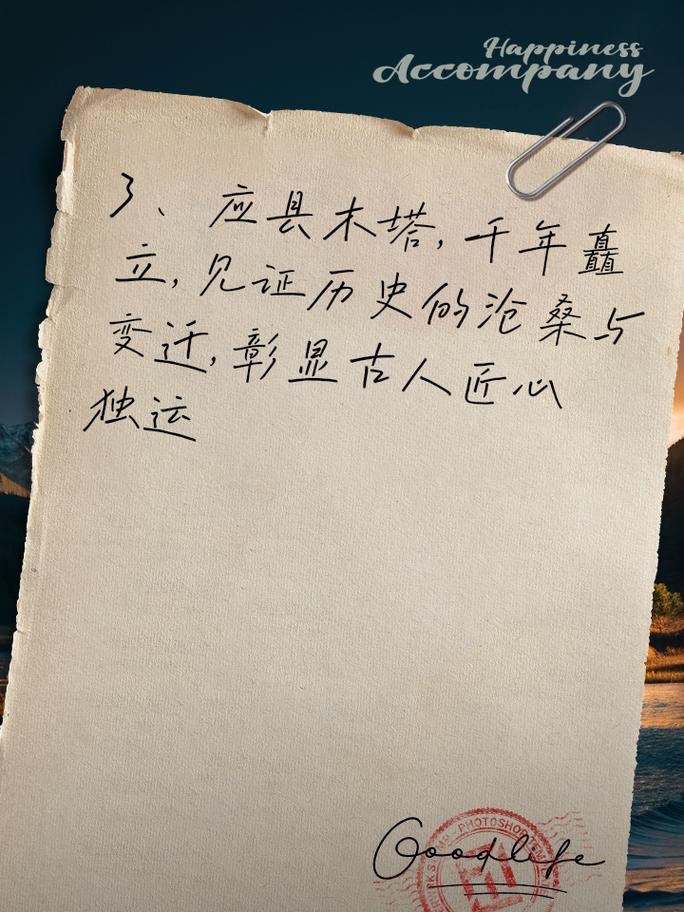 Happiness
Accompany
3、应县木塔,千年矗
立,见证历史的沧桑与
变迁,彰显古人匠心
独运
Goodlife
PHOTOSHOP